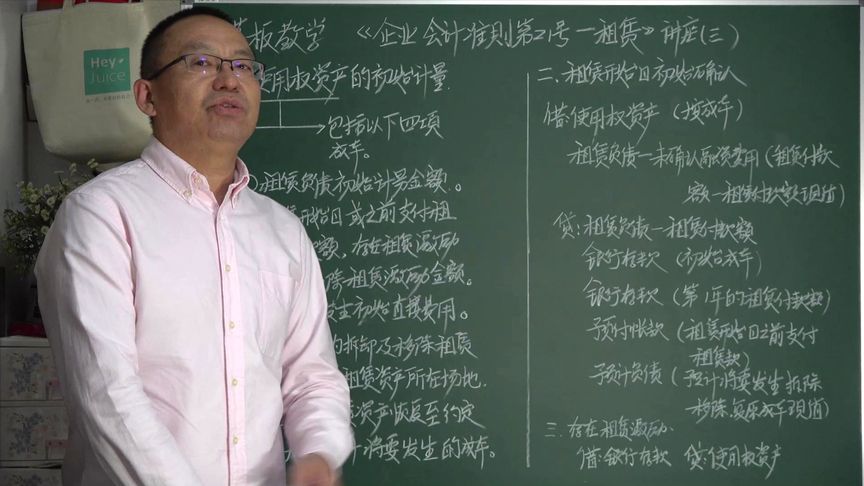 Hey
Juice
板教学 《企业会计准则第21号一租赁》讲座(三)
使用权资产的初始计量
包括以下四项
成本。
租赁负债初始计量金额。
开始日或之前支付租
额,存在租赁激励
除租赁激励金额。
发生初始直接费用。
的拆卸及移除租赁
租赁资产所在场地
资产恢复至约定
计将要发生的成本。
二、租赁开始日初始确认
借:使用权资产 (按成本)
租赁负债一未确认融资费用(租赁付款
额一租赁付款额现值)
贷:租赁负债一租赁付款额
银行存款 (初始成本)
银行存款 (第1年的租赁付款额)
预付帐款 (租赁开始日之前支付
租赁款)
预计负债 (预计将要发生拆除
移除、复原成本现值)
三、存在租赁激励、
借:银行存款 贷:使用权资产